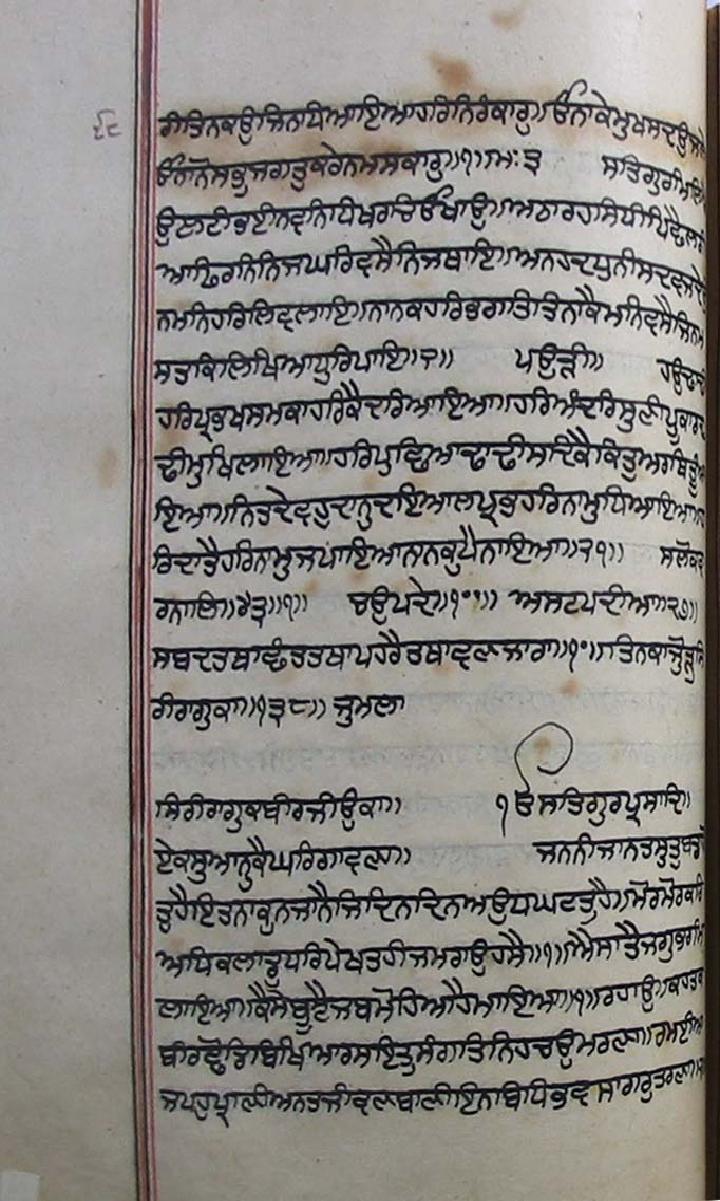 ਰੀਤਿਨਕਉਜਿਨਾਧਿਆਇਆਹਰਿਨਿਰੰਕਾਰੁ॥ਓਨਾਕੇਮੁਖਸਦਉਜਲੇ
ਓਨਾਨੋਸਭੁਜਗਤੁਕਰੇਨਮਸਕਾਰੁ॥੧॥ਮਃ੩ ਸਤਿਗੁਰਮਿਲਿ
ਉਲਟੀਭਈਨਵਨਿਧਿਖਰਚਿਓਖਾਉ॥ਅਠਾਰਹਸਿਧੀਪਿਛੈਲਗੀ
ਆਫਿਰਨਿਨਿਜਘਰਿਵਸੈਨਿਜਥਾਇ॥ਅਨਹਦਧੁਨੀਸਦਵਜਦੇਉ
ਨਮਨਿਹਰਿਲਿਵਲਾਇ॥ਨਾਨਕਹਰਿਭਗਤਿਤਿਨਾਕੈਮਨਿਵਸੈਜਿਨਮ
ਸਤਕਿਲਿਖਿਆਧੁਰਿਪਾਇ॥੨॥ ਪਉੜੀ॥ ਹਉਢਾਢੀ
ਹਰਿਪ੍ਰਭਖਸਮਕਾਹਰਿਕੈਦਰਿਆਇਆ॥ਹਰਿਅੰਦਰਿਸੁਣੀਪੂਕਾਰਢਾ
ਢੀਮੁਖਿਲਾਇਆ॥ਹਰਿਪੁਛਿਆਢਾਢੀਸਦਿਕੈਕਿਤੁਅਰਥਿਤੂੰਆ
ਇਆ॥ਨਿਤਦੇਵਹੁਦਾਨੁਦਇਆਲਪ੍ਰਭਹਰਿਨਾਮੁਧਿਆਇਆ॥ਹ
ਰਿਦਾਤੈਹਰਿਨਾਮੁਜਪਾਇਆਨਾਨਕੁਪੈਨਾਇਆ॥੨੧॥ ਸਲੋਕਵ
ਰਨਾਲਿ॥੪੩॥੧॥ ਚਉਪਦੇ॥੧੦੧॥ ਅਸਟਪਦੀਆ॥੨੭॥
ਸਬਦਤਥਾਛੰਤਤਥਾਪਹਰੈਤਥਾਵਣਜਾਰਾ॥੧੦॥ਤਿਨਕਾਜੋੜੁਸਿ
ਰੀਰਾਗੁਕਾ॥੧੩੮॥ ਜੁਮਲਾ
ਸਿਰੀਰਾਗੁਕਬੀਰਜੀਉਕਾ॥ ੧ਓਸਤਿਗੁਰਪ੍ਰਸਾਦਿ॥
ਏਕਸੁਆਨੁਕੈਘਰਿਗਾਵਣਾ॥ ਜਨਨੀਜਾਨਤਸੁਤੁਬਡਾਹੋ
ਤੁਹੈਇਤਨਾਕੁਨਜਾਨੈਜਿਦਿਨਦਿਨਅਉਧਘਟਤੁਹੈ॥ਮੋਰਮੋਰਕਰਿ
ਅਧਿਕਲਾਡੁਧਰਿਪੇਖਤਹੀਜਮਰਾਉਹਸੈ॥੧॥ਐਸਾਤੈਜਗੁਭਰਮਿ
ਲਾਇਆ॥ਕੈਸੇਬੂਝੈਜਬਮੋਹਿਆਹੈਮਾਇਆ॥੧॥ਰਹਾਉ॥ਕਹਤਕ
ਬੀਰਛੋਡਿਬਿਖਿਆਰਸਇਤੁਸੰਗਤਿਨਿਹਚਉਮਰਣਾ॥ਰਮਈਆ
ਜਪਹੁਪ੍ਰਾਣੀਅਨਤਜੀਵਣਬਾਣੀਇਨਬਿਧਿਭਵਸਾਗਰੁਤਰਣਾ॥